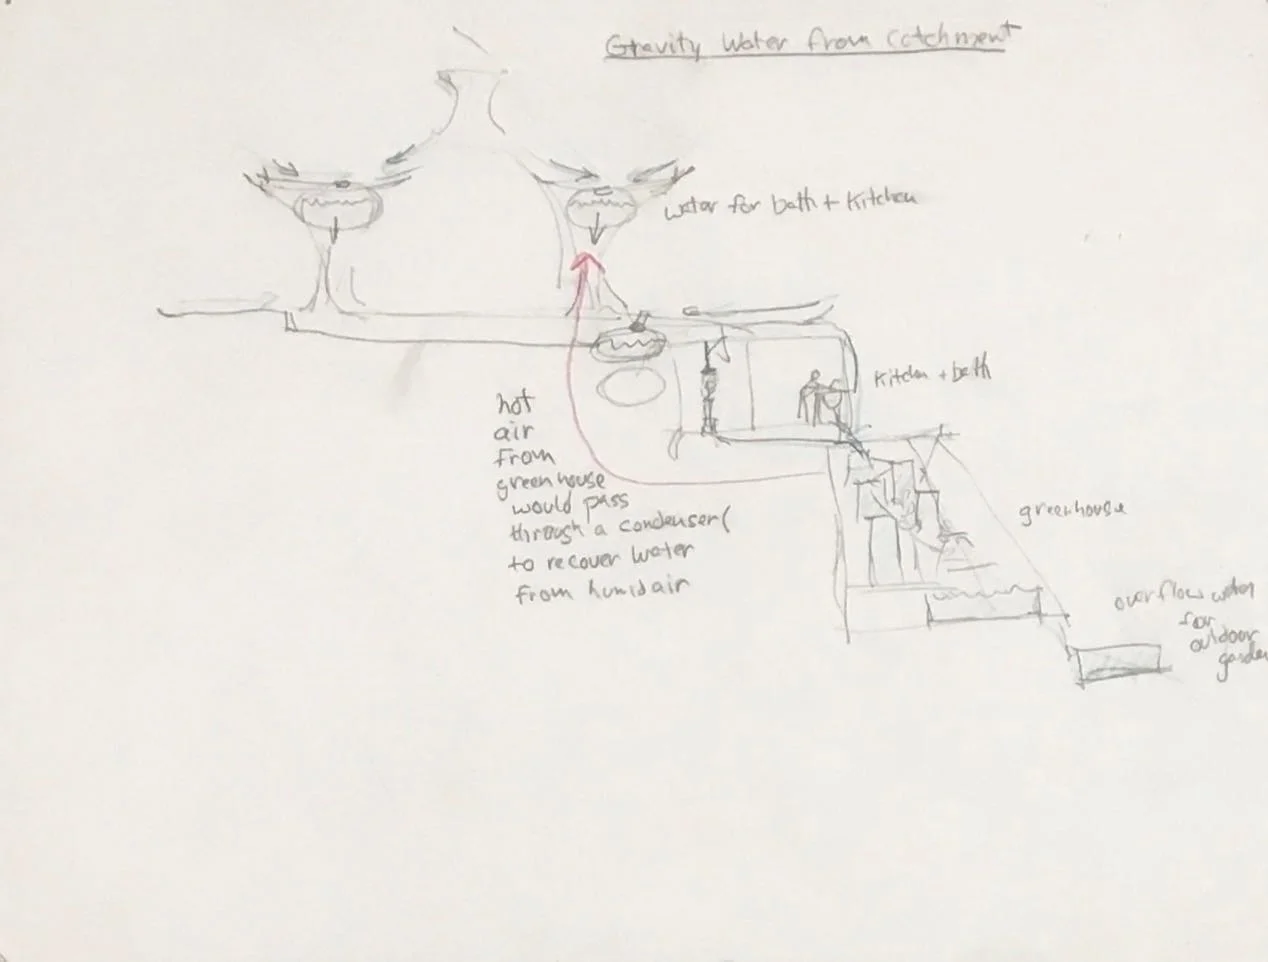 Gravity Water from Catchment
water for bath + Kitchen
Kitchen + bath
hot
air
from
greenhouse
would pass
through a condenser(
to recover water
from humid air
greenhouse
overflow water
for
outdoor
garden